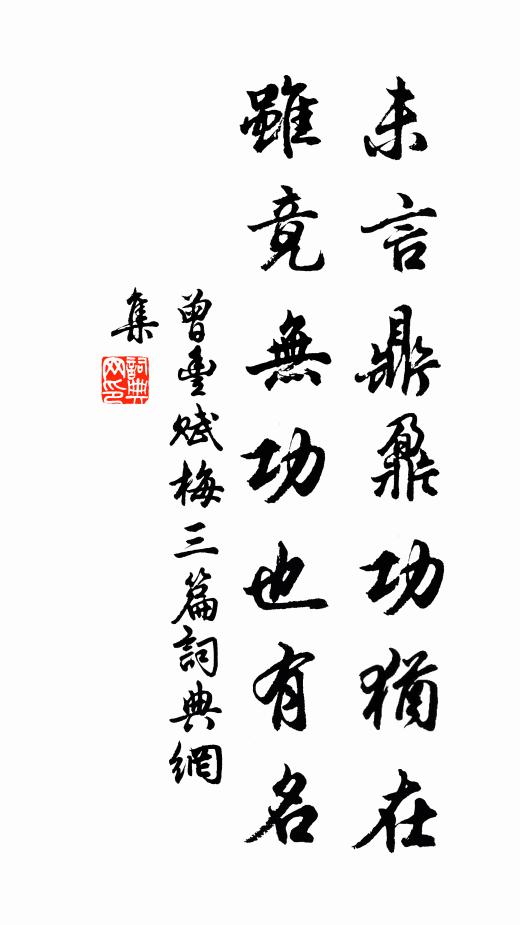 未言鼎鼐功猶在
雖竟無功也有名
曾豐賦梅三篇詞典網
集
詞典
网印